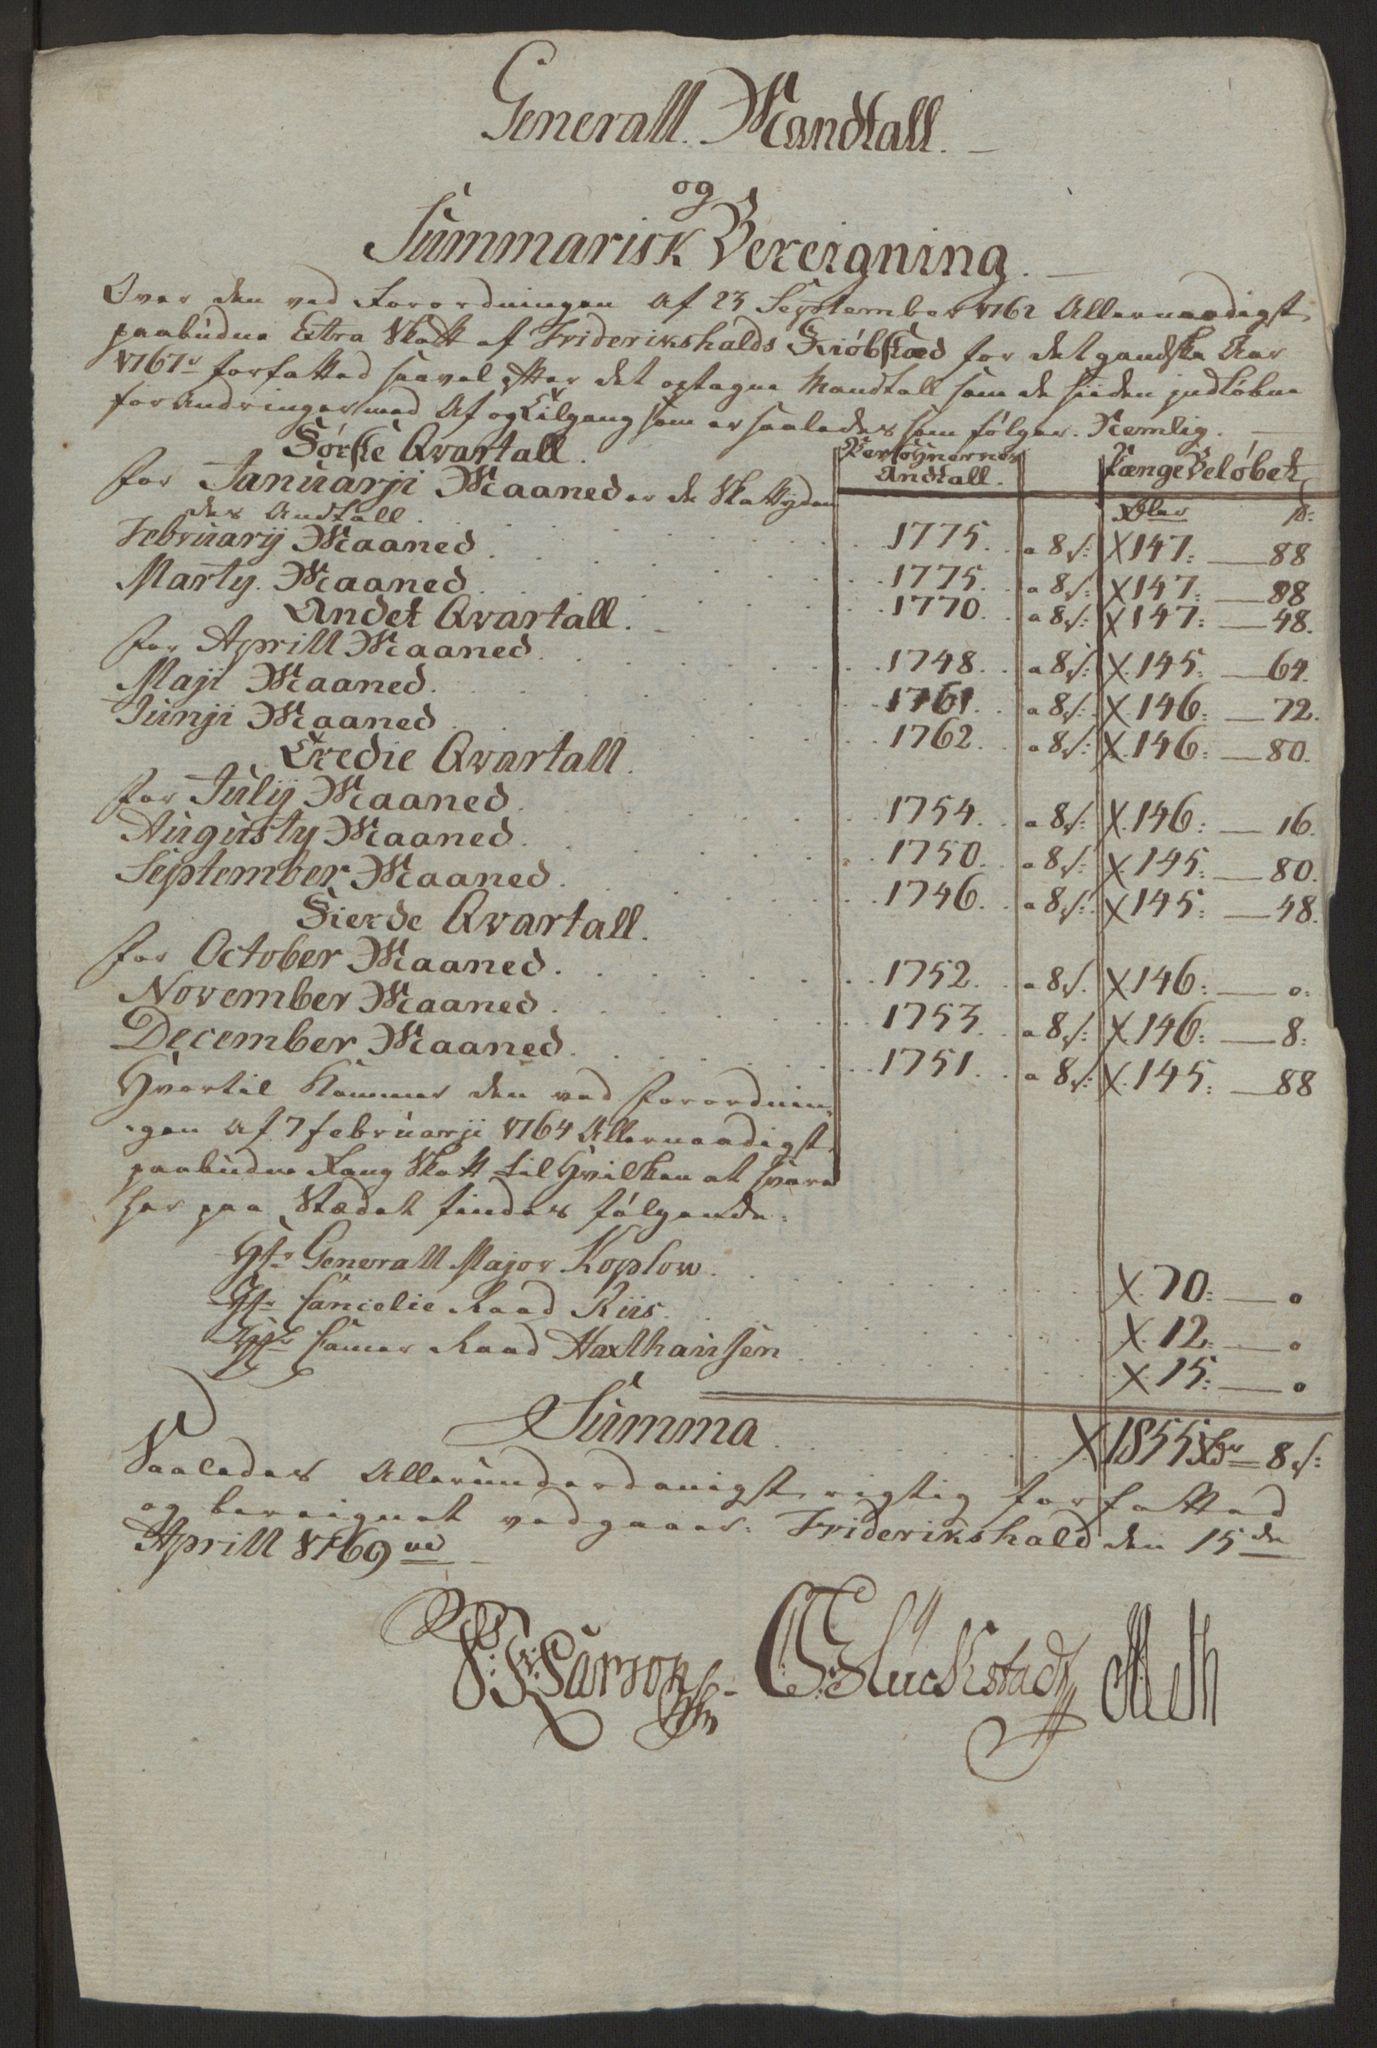 Generall Mandtall.
og
Summarisk Bereigning.
Over den ved Forordningen af 23 September 1762 Allernaadigst
paabudne Extra Skatt af Friderikshalds Kiøbstæd for det gandske Aar
1767 forfatted saavel efter det optagne Mandtall som de siden indløbne
forandringer med Af og Tilgang som er saaledes som følger. Nemlig.
Første Qvartall. Persohnernes Andtall. Penge Beløbet
for Januarji Maaned er de Skattyden
des Andtall. 1775. a 8 s: X 147: 88
February Maaned. 1775. a 8 s: X 147: 88
Marty Maaned. 1770. a 8 s: X 147: 48.
Andet Qvartall.
for Aprill Maaned. 1748. a 8 s: X 145: 64.
Maji Maaned. 1761. a 8 s: X 146: 72.
Junji Maaned. 1762. a 8 s: X 146: 80.
Tredie Qvartall.
for July Maaned. 1754. a 8 s: X 146: 16.
Augusty Maaned. 1750. a 8 s: X 145: 80.
September Maaned. 1746. a 8 s: X 145: 48.
Fierde Qvartall.
for October Maaned. 1752. a 8 s. X 146: 0:
November Maaned. 1753. a 8 s: X 146: 8:
December Maaned. 1751. a 8 s: X 145: 88
Hvortil kommer den ved Forordnin,
gen af 7 Februarji 1764 Allernaadigst
paabudne Rang Skatt til hvilken at svare
her paa Stædet findes følgende:
Hr. Generall Major Koplow. X 70: 0
Hr. Cancelie Raad Riis. X 12: 0
Hr. Camer Raad Haxthausen X 15: 0
Summa. X 1855 8 s:
Saaledes Allerunderdanigst rigtig forfatted
og bereignet vedgaaer. Friderikshald den 15de
Aprill 1769
Glückstadt